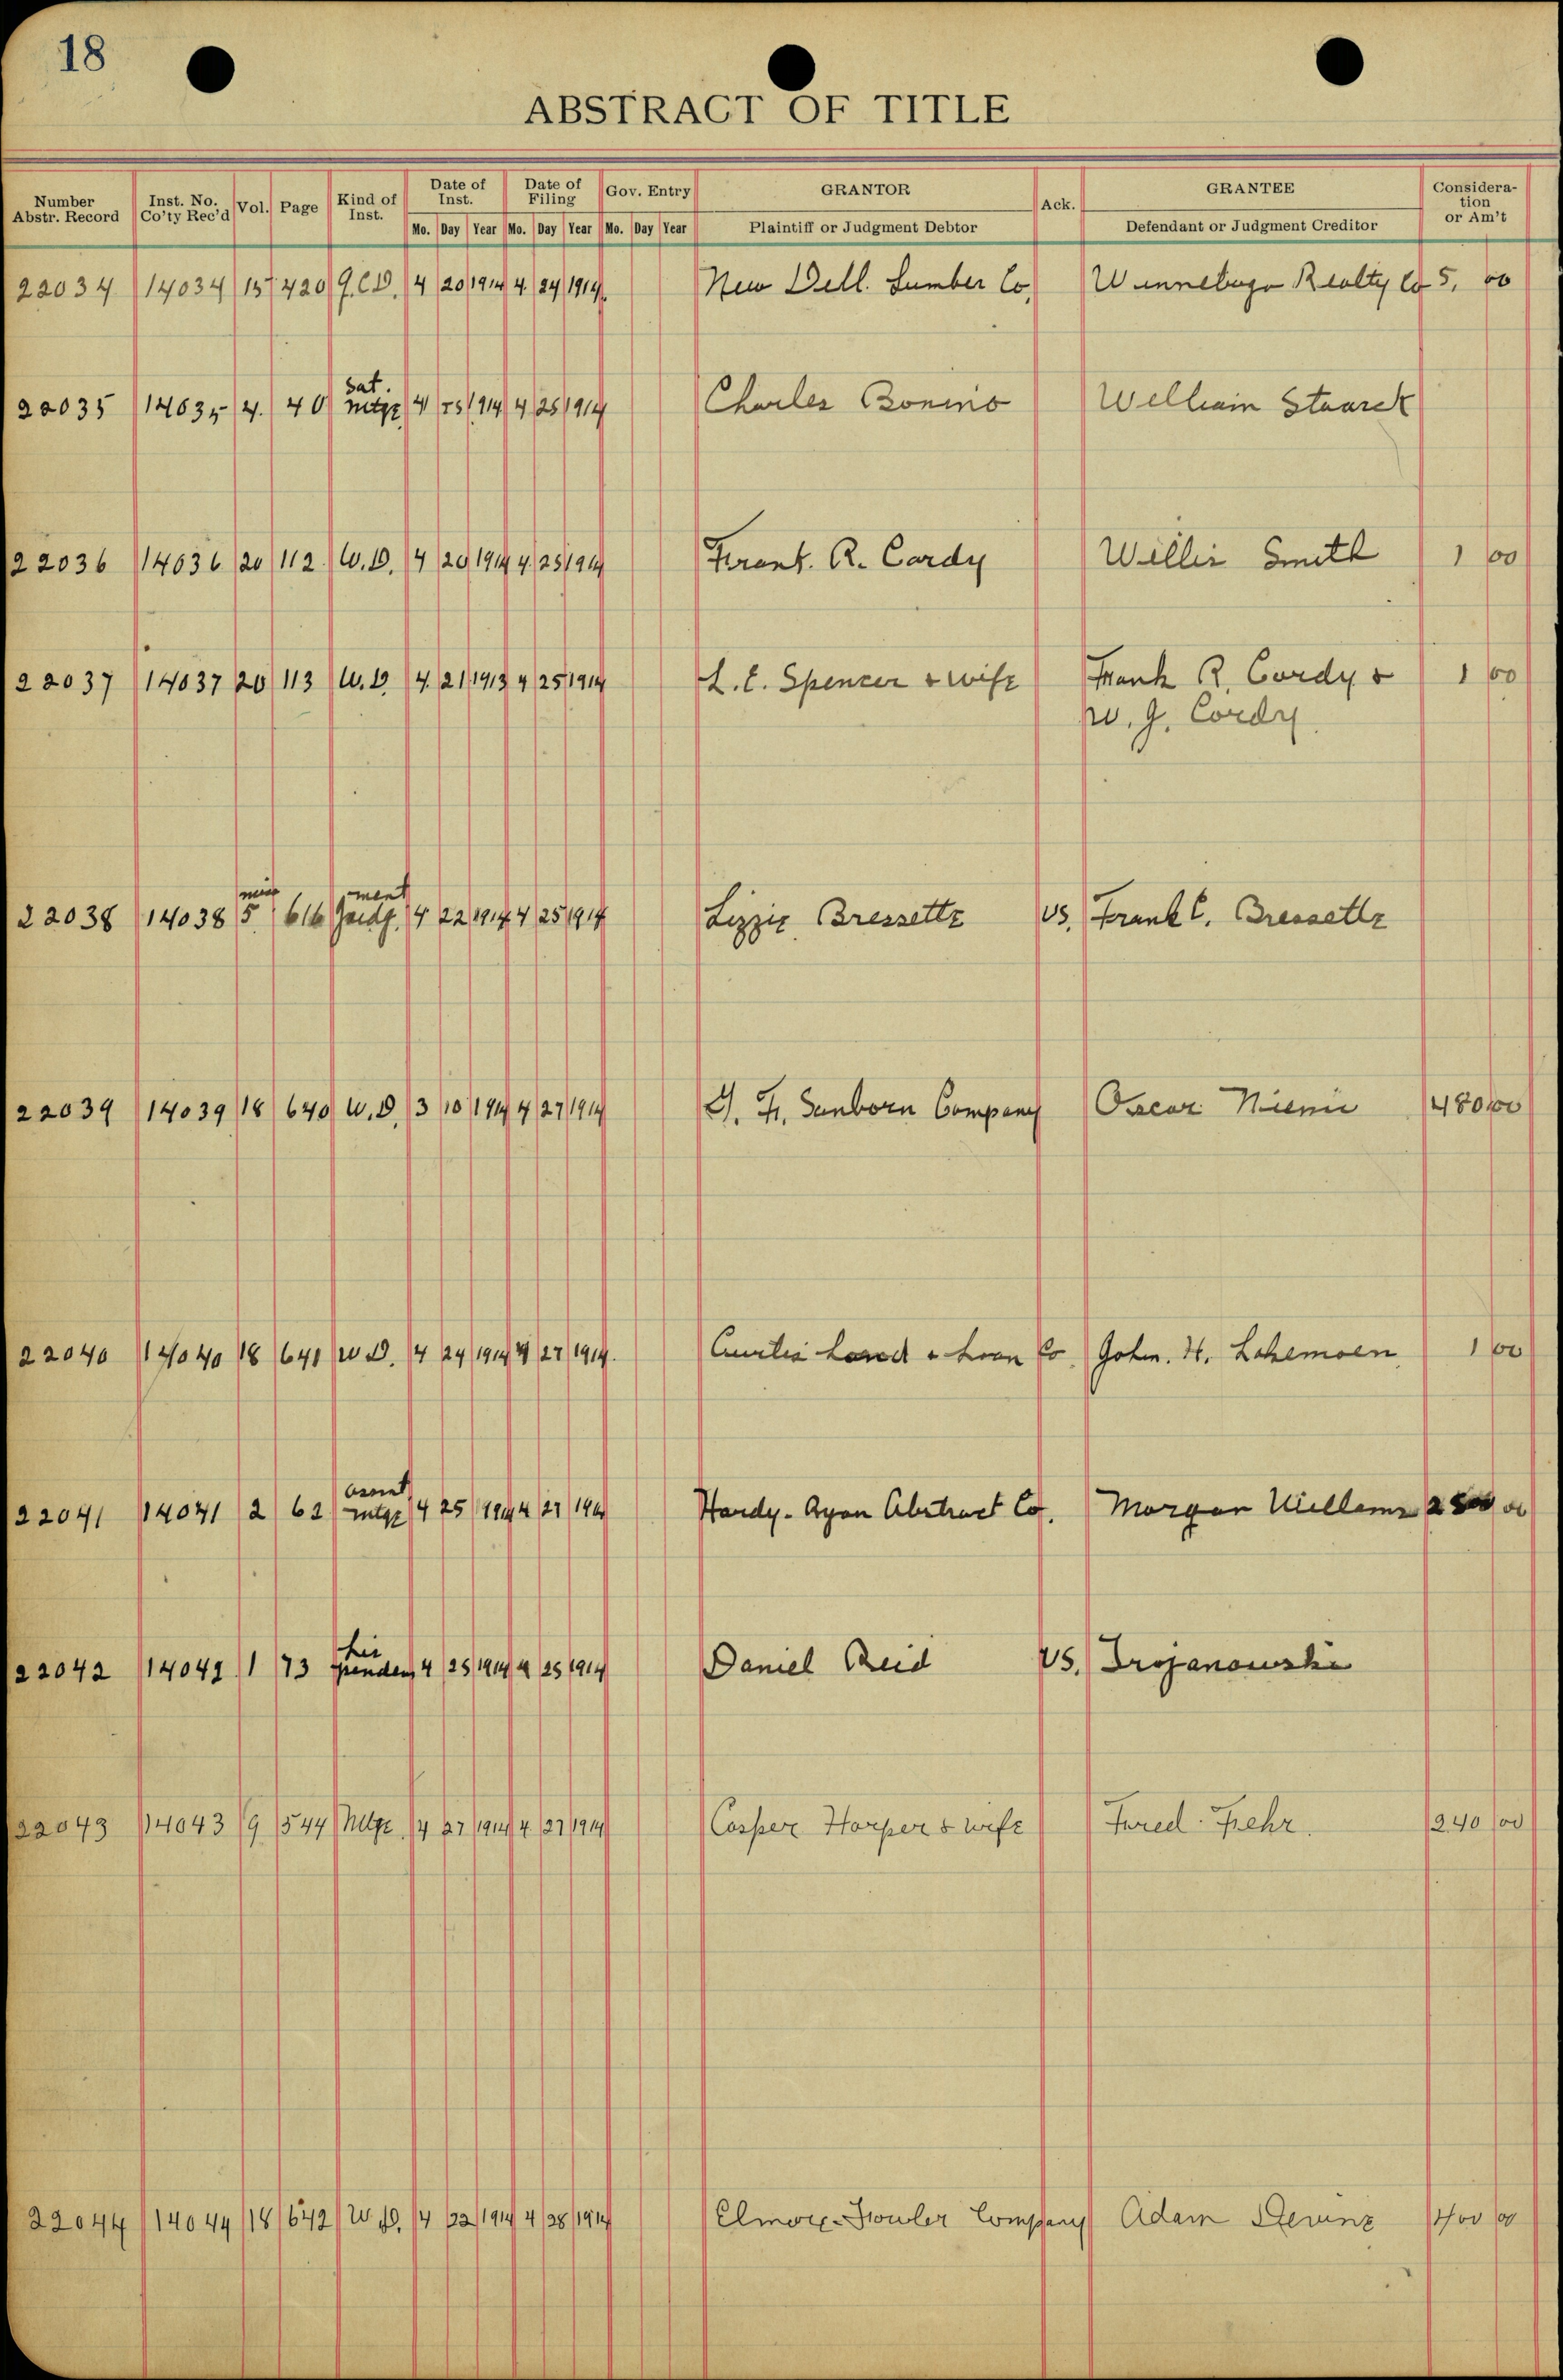 18
ABSTRACT OF TITLE
Number Abstr. Record Inst. No. Co'ty Rec'd Vol. Page Kind of Inst. Date of Inst. Date of Filing Gov. Entry GRANTOR Ack. GRANTEE Considera-tion or Am't
Mo. Day Year Mo. Day Year Mo. Day Year Plaintiff or Judgment Debtor Defendant or Judgment Creditor
22034 14034 157 420 Q.C.D. 4 20 1914 4. 24 1914 New Dell. Lumber Co. Winnebago Realty Co 5, 00
Sat.
22035 14035 4. 40 mtge 4 1914 4 25 1914 Charles Bonino William Staarck
22036 14036 20 112. W.D. 4 20 1914 4 25 1914 Frank. R. Cardy Willis Smith 1 00
22037 14037 20 113 W.D. 4. 21 1913 4 25 1914 L. E. Spencer & wife Frank R. Cordy & 1 00
W. J. Cordy
misc ment
22038 14038 5 616 Judg. 4 22 1914 4 25 1914 Lizzie Bressette vs. Frank C. Bressette
22039 14039 18 640 W.D. 3 10 1914 4 27 1914 J. F. Sanborn Company Oscar Niemi 480 00
22040 14040 18 641 W D. 4 24 1914 4 27 1914. Curtis Land & Loan Co John. H. Lakemoen 1 00
assmt
22041 14041 2 62 mtge 4 25 1914 4 27 1914 Hardy-Ryan Abstract Co. Morgan Willems 2500 00
Lis
22042 14042 1 73 pendens 4 25 1914 4 25 1914 Daniel Reid vs. Trojanowski
22043 14043 9 544 Mtge. 4 27 1914 4 27 1914 Casper Harper & wife Fred Fehr 240 00
22044 14044 18 642 W.D. 4 22 1914 4 28 1914 Elmore-Fowler Company Adam 400 00